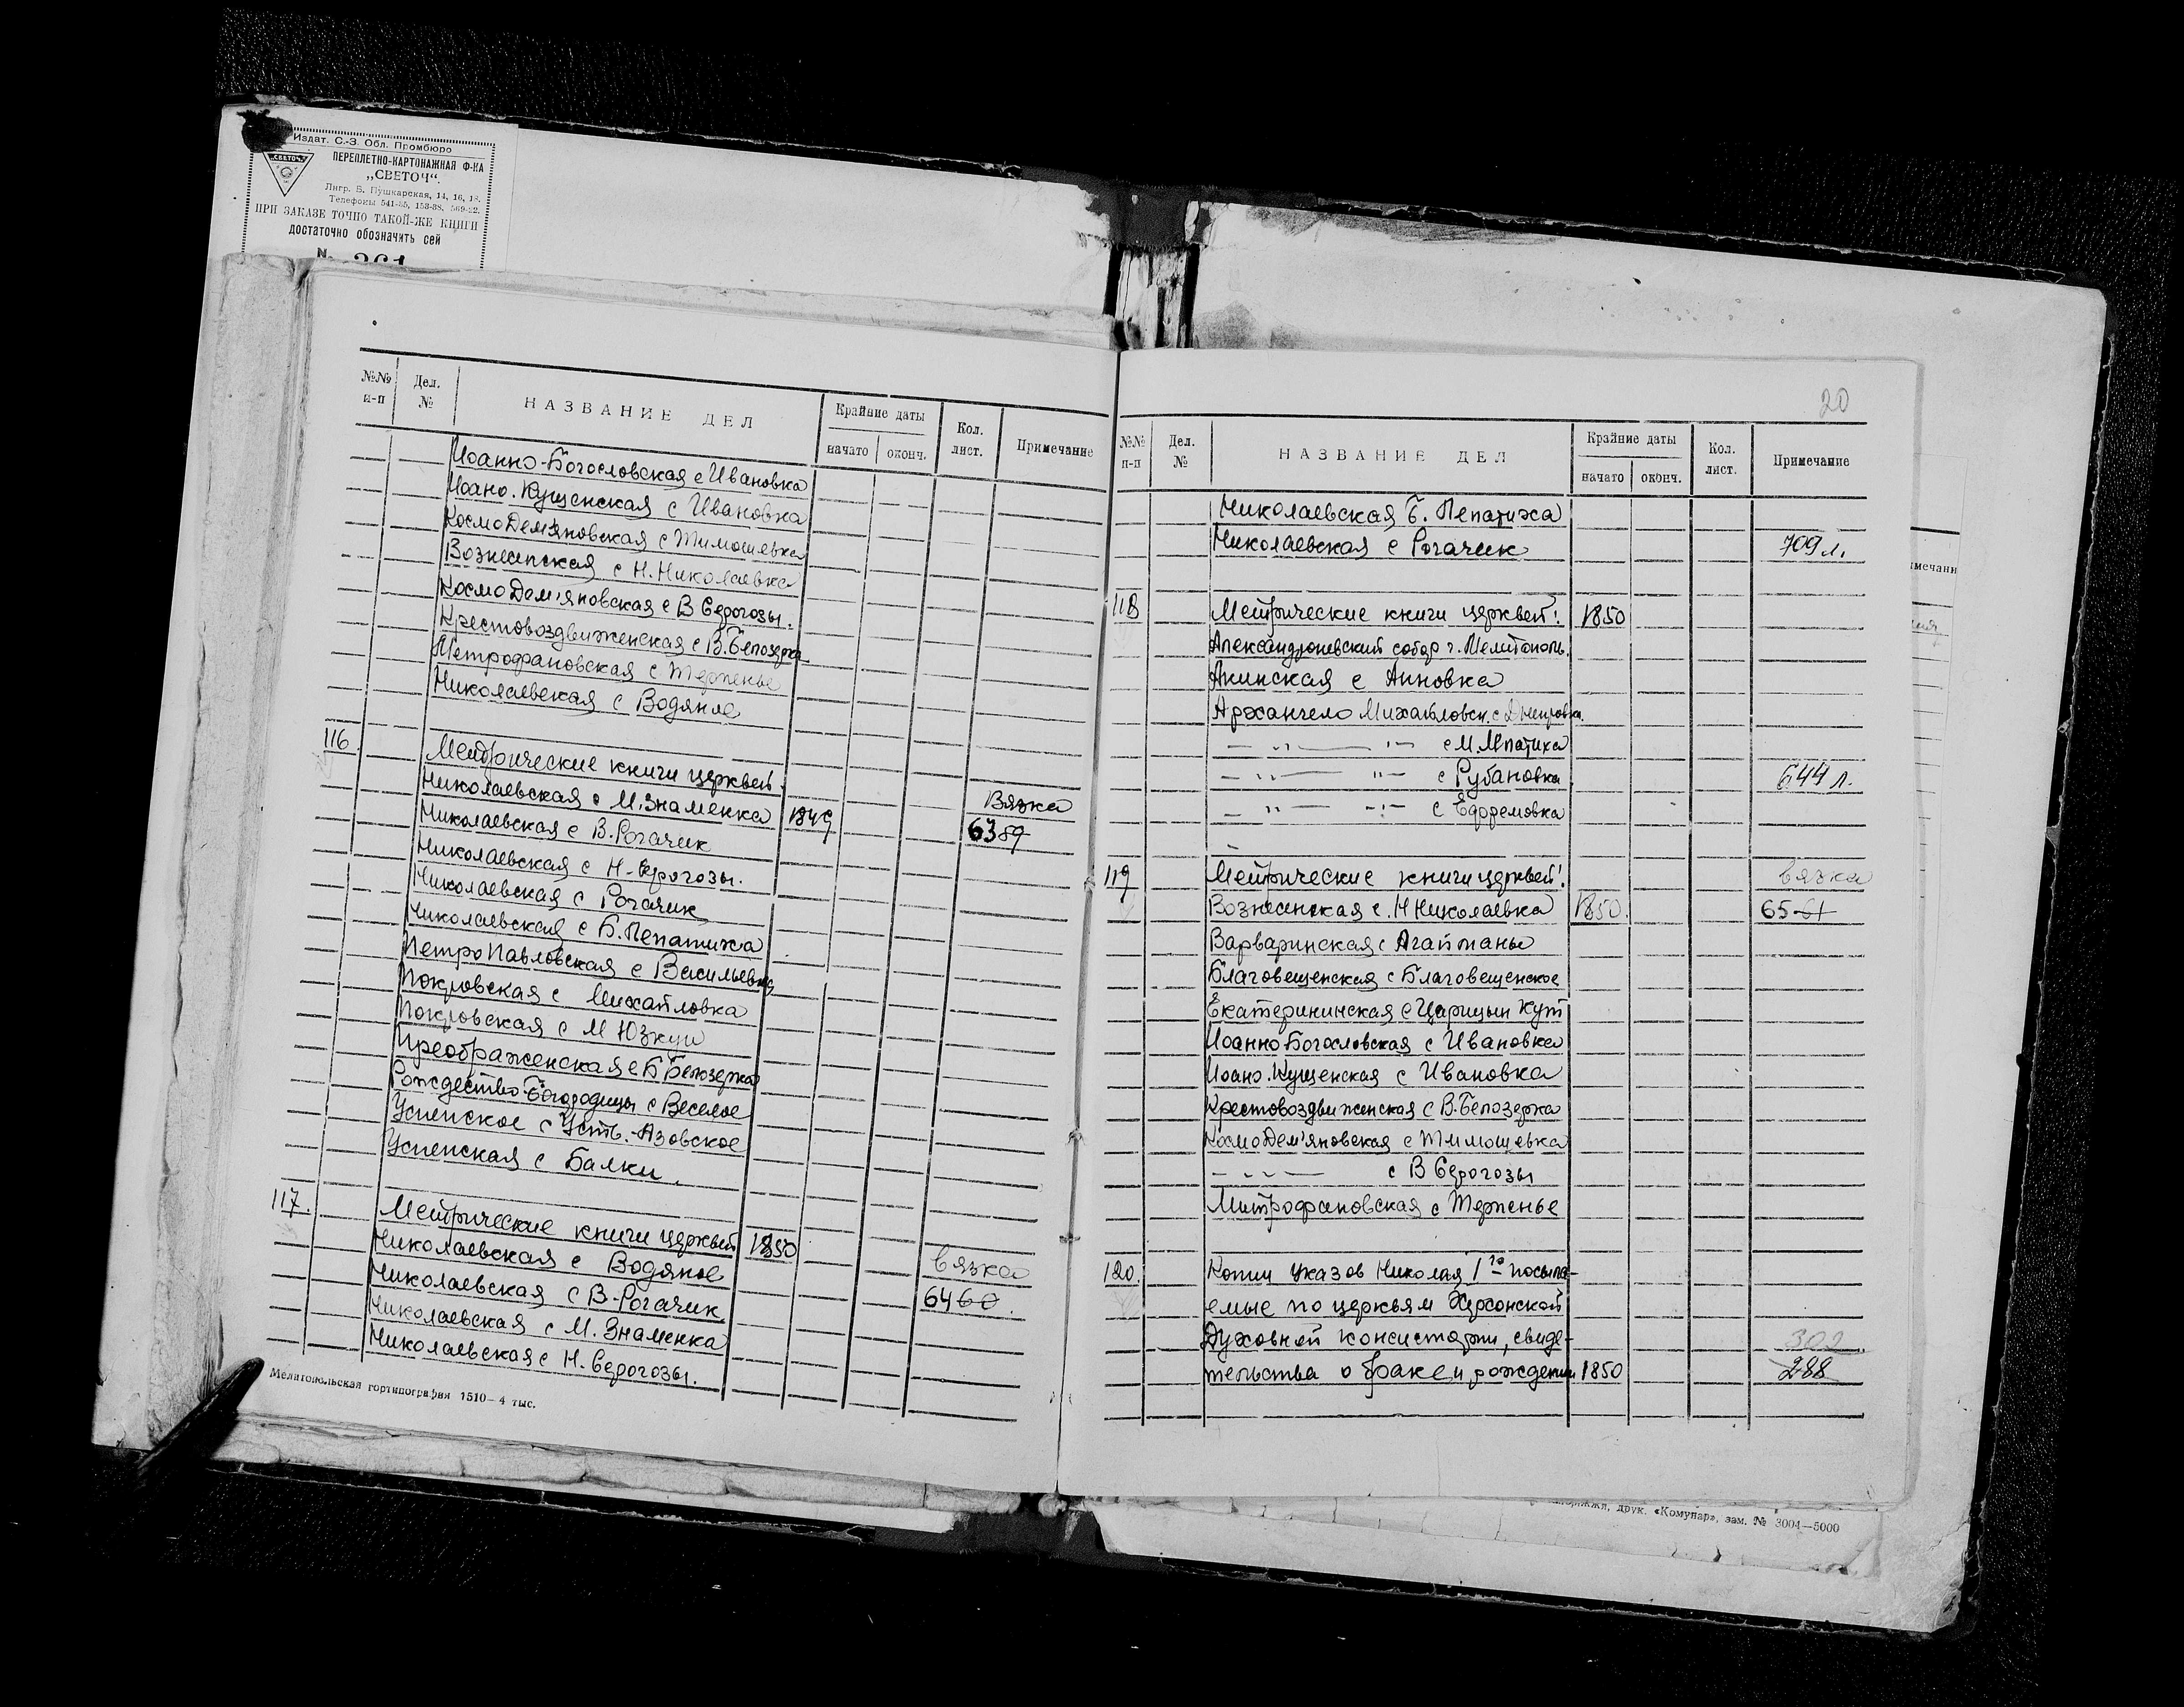 Издат. С.-З. Обл. Промбюро
„СВЕТОЧ“
ПЕРЕПЛЕТНО-КАРТОНАЖНАЯ Ф-КА
„СВЕТОЧ“.
Лнгр. Б. Пушкарская, 14, 16, 18.
Телефоны 541-55, 153-38, 569-22.
ПРИ ЗАКАЗЕ ТОЧНО ТАКОЙ-ЖЕ КНИГИ
достаточно обозначить сей
№ 261
№№ п-п Дел. № НАЗВАНИЕ ДЕЛ Крайние даты начато оконч. Кол. лист. Примечание
Иоанно-Богословская с Ивановка
Иоано.Кущенская с Ивановка
КосмоДемЪяновская с Тимошевка
Вознесенская с Н.Николаевка
КосмоДем'яновская с В Серогозы.
Крестовоздвиженская с В.Белозерка
Метрофановская с Терпенье
Николаевская с Водяное
116. Метрические книги церквей.
Николаевская с М.Знаменка 1849 Вязка
Николаевская с В.Рогачик 6359
Николаевская с Н-Серогозы.
Николаевская с Рогачик
Николаевская с Б.Лепатиха
ПетроПавловская с Васильевка
Покровская с Михайловка
Покровская с М Юзкуи
Преображенская с Б Белозерка
Рождество-Богородицы с Веселое
Успенское с Усть.-Азовское
Успенская с Балки.
117. Метрические книги церквей 1850
Николаевская с Водяное вязка
Николаевская с В-Рогачик 6460.
Николаевская с М.Знаменка
Николаевская с Н-Серогозы.
Мелитопольская гортипография 1510—4 тыс.
20
№№ п-п Дел. № НАЗВАНИЕ ДЕЛ Крайние даты начато оконч. Кол. лист. Примечание
Николаевская Б. Лепатиха
Николаевская с Рогачик 709 л.
118 Метрические книги церквей: 1850
Александроневский собор г. Мелитополь.
Анинская с Анновка
Архангело Михайловск. с Днепровка.
— „ — „ — с М.Лпатиха
— „ — „ — с Рубановка 644 л.
— „ — „ — с Ефремовка
119 Метрические книги церквей: вязка
Вознесенская с. Н Николаевка 1850. 65-61
Варваринская с Агайманы
Благовещенская с Благовещенское
Екатерининская с Царицын Кут
Иоанно Богословская с Ивановка
Иоано.Кущенская с Ивановка
Крестовоздвиженская с В.Белозерка
КосмоДем'яновская с Тимошевка
— „ — с В Серогозы
Митрофановская с Терпенье
120. Копии указов Николая 1го посыла-
емые по церквям Херсонской
Духовной консистории, свиде- 302
тельства о браке и рождении 1850 288
имечани
друк. «Комунар», зам. № 3004—5000